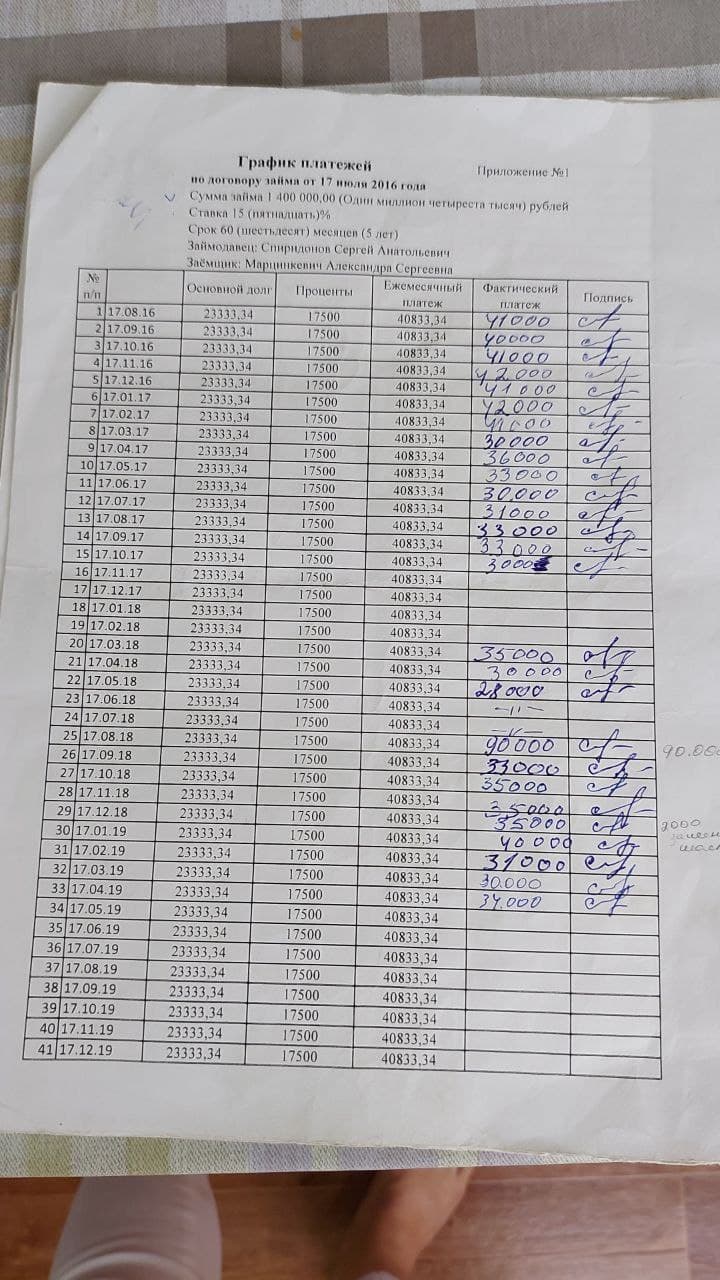 График платежей Приложение №1
по договору займа от 17 июля 2016 года
Сумма займа 1 400 000,00 (Один миллион четыреста тысяч) рублей
Ставка 15 (пятнадцать)%
Срок 60 (шестьдесят) месяцев (5 лет)
Займодавец: Спиридонов Сергей Анатольевич
Заёмщик: Марцинкевич Александра Сергеевна
№ п/п Основной долг Проценты Ежемесячный платеж Фактический платеж Подпись
1 17.08.16 23333,34 17500 40833,34 41000
2 17.09.16 23333,34 17500 40833,34 40000
3 17.10.16 23333,34 17500 40833,34 41000
4 17.11.16 23333,34 17500 40833,34 42000
5 17.12.16 23333,34 17500 40833,34 41000
6 17.01.17 23333,34 17500 40833,34 42000
7 17.02.17 23333,34 17500 40833,34 41000
8 17.03.17 23333,34 17500 40833,34 30000
9 17.04.17 23333,34 17500 40833,34 36000
10 17.05.17 23333,34 17500 40833,34 33000
11 17.06.17 23333,34 17500 40833,34 30.000
12 17.07.17 23333,34 17500 40833,34 31000
13 17.08.17 23333,34 17500 40833,34 33000
14 17.09.17 23333,34 17500 40833,34 33000
15 17.10.17 23333,34 17500 40833,34
16 17.11.17 23333,34 17500 40833,34
17 17.12.17 23333,34 17500 40833,34
18 17.01.18 23333,34 17500 40833,34
19 17.02.18 23333,34 17500 40833,34
20 17.03.18 23333,34 17500 40833,34 35000
21 17.04.18 23333,34 17500 40833,34 30000
22 17.05.18 23333,34 17500 40833,34 28000
23 17.06.18 23333,34 17500 40833,34 -11-
24 17.07.18 23333,34 17500 40833,34 -11-
25 17.08.18 23333,34 17500 40833,34 90000 90.00
26 17.09.18 23333,34 17500 40833,34 33000
27 17.10.18 23333,34 17500 40833,34 35000
28 17.11.18 23333,34 17500 40833,34 35000
29 17.12.18 23333,34 17500 40833,34 35000
30 17.01.19 23333,34 17500 40833,34 40000
31 17.02.19 23333,34 17500 40833,34 31000
32 17.03.19 23333,34 17500 40833,34 30.000
33 17.04.19 23333,34 17500 40833,34 34.000
34 17.05.19 23333,34 17500 40833,34
35 17.06.19 23333,34 17500 40833,34
36 17.07.19 23333,34 17500 40833,34
37 17.08.19 23333,34 17500 40833,34
38 17.09.19 23333,34 17500 40833,34
39 17.10.19 23333,34 17500 40833,34
40 17.11.19 23333,34 17500 40833,34
41 17.12.19 23333,34 17500 40833,34